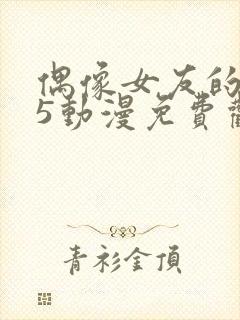 偶像女友的
5動漫免費
青衫金頂